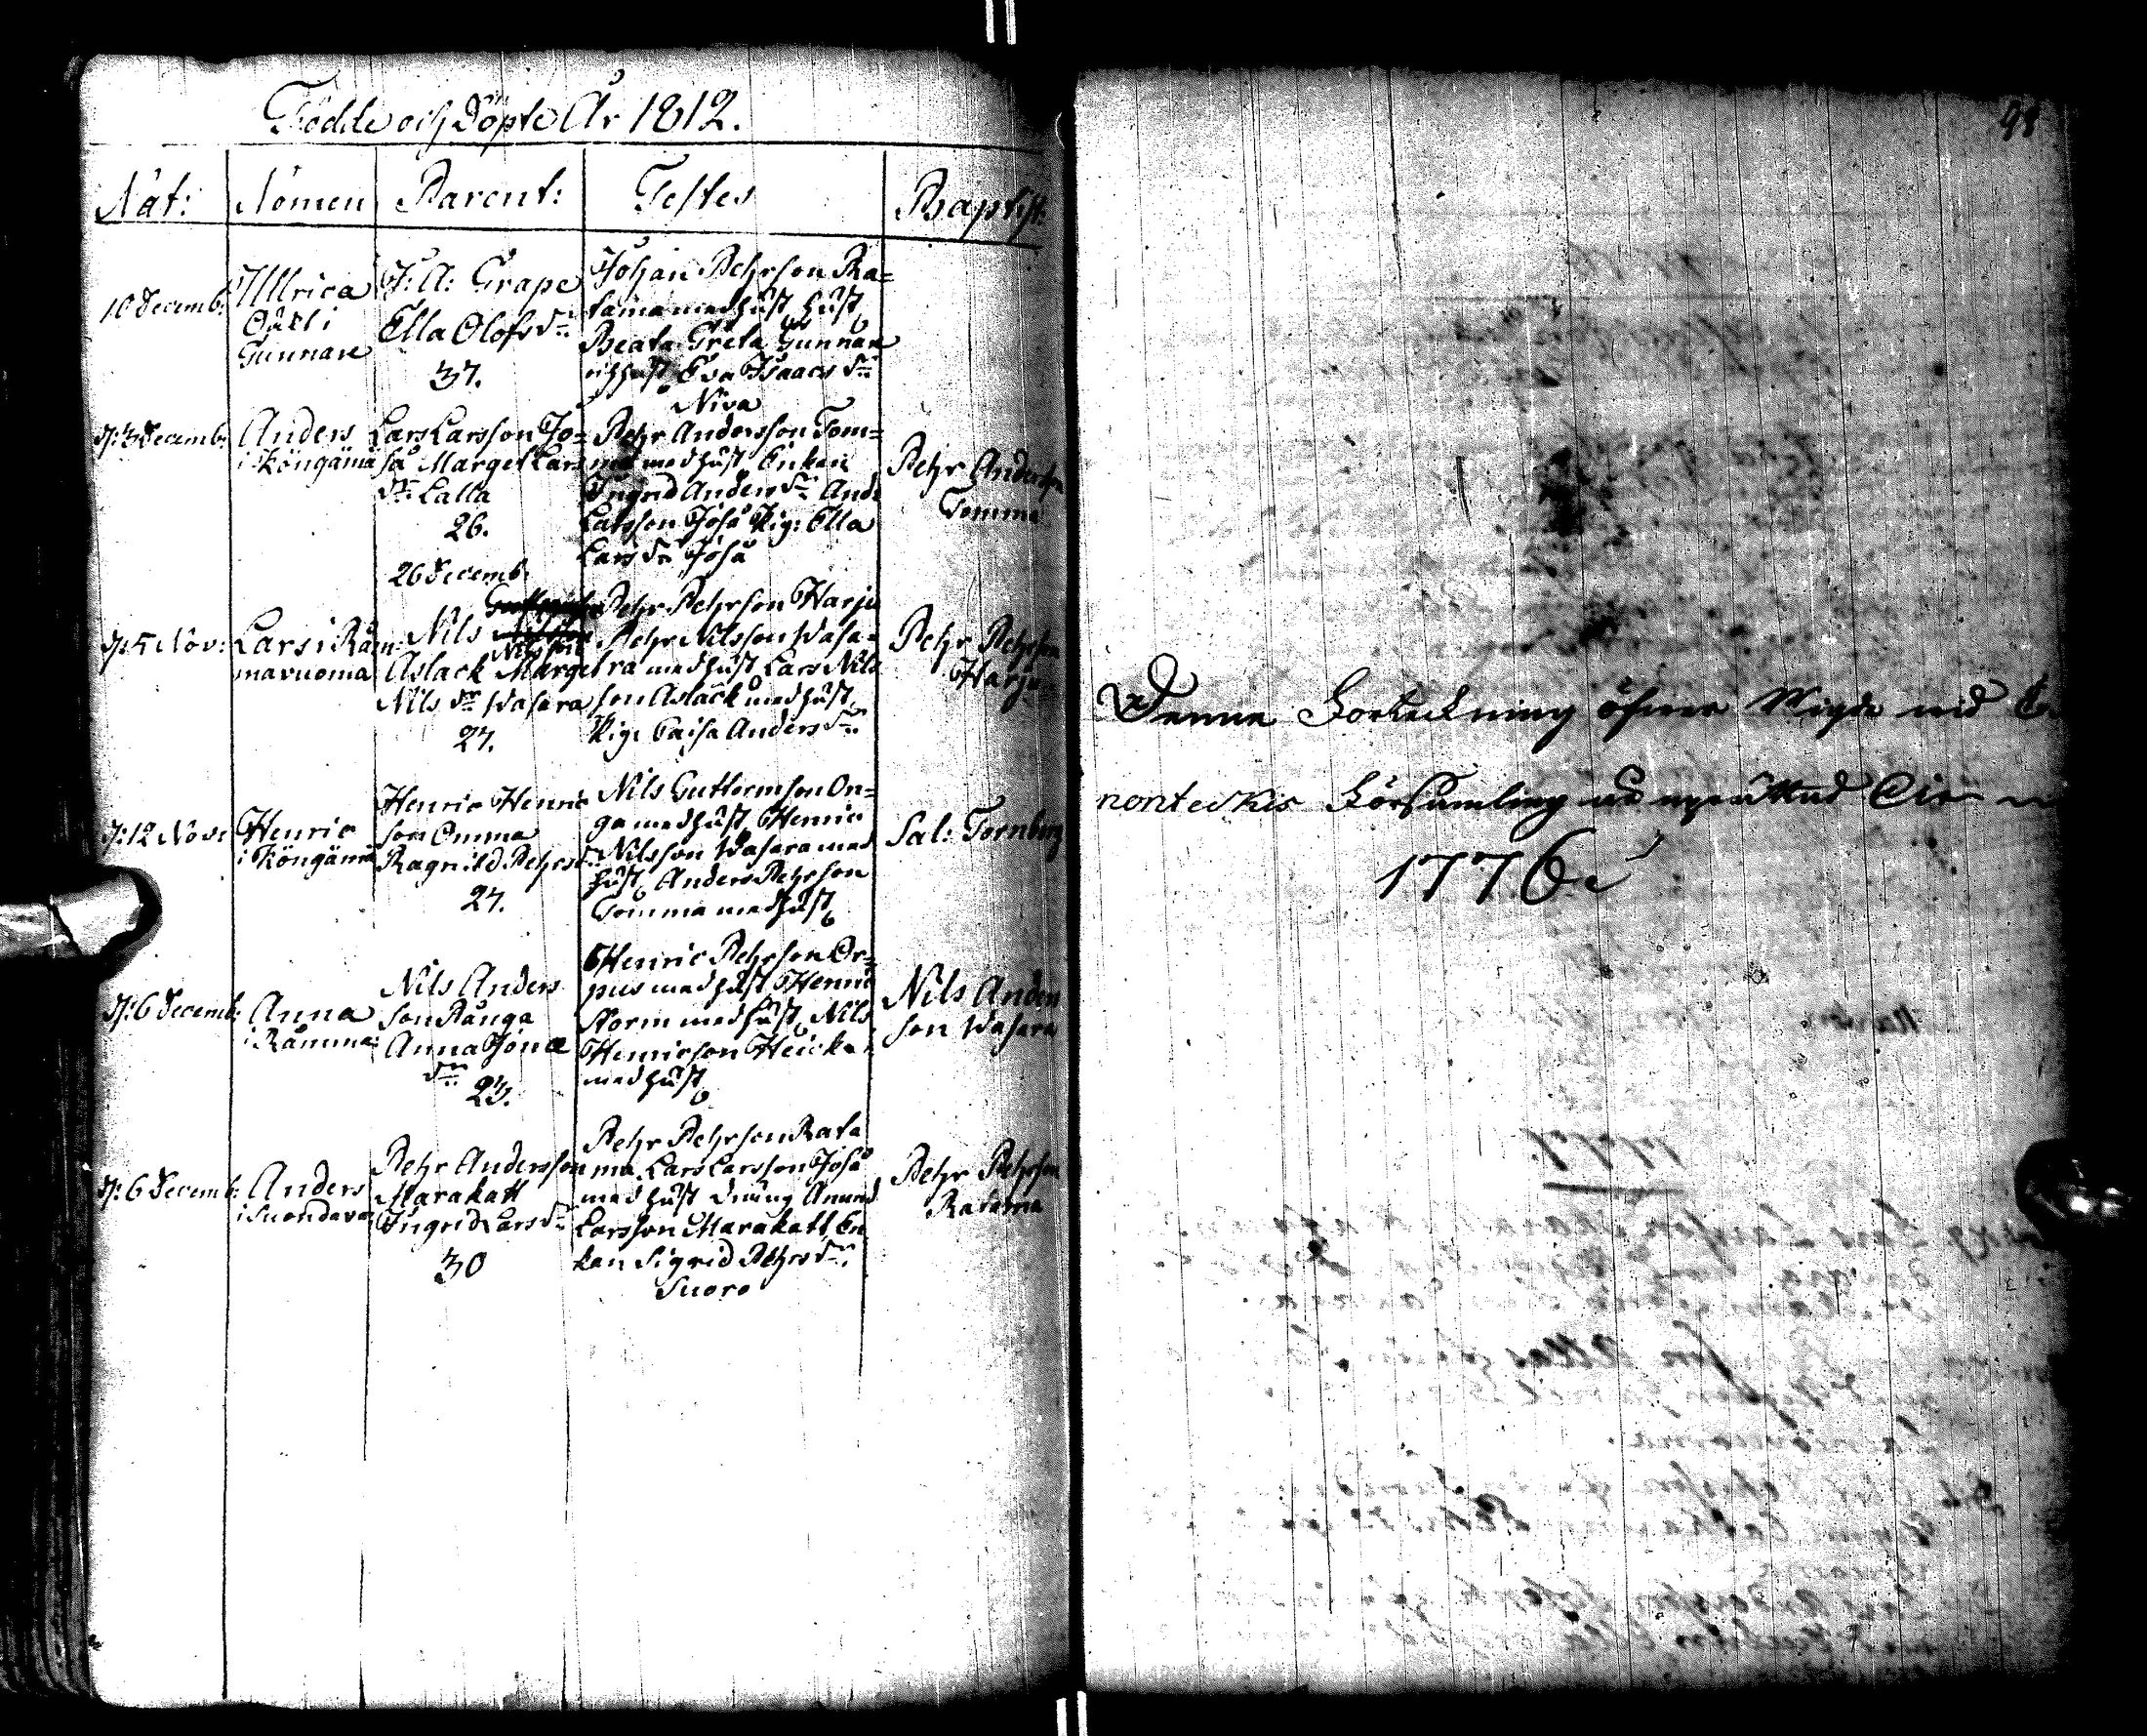 Födde och Döpte År 1812.
Nat: Nomen Parent: Testes Baptist:
10 Decemb: Ullrica
i
Gunnare
J: A: Grape
Ella Olofs dr
37.
Johan Pehrson Ra=
tama med hust, hust,
Beata Greta Gunnare
och hust Eva Isaacs dr
Niva
D: 3 Decemb: Anders
i Köngämä
Lars Larsson Jo=
sa Marget Lars
dr Lalla
26.
Pehr Andersson Tom=
ma med hust, Enkan
Ingrid Anders dr And:
Larsson Josa Pig: Ella
Lars dr Josa
Pehr Anderson
Tomma
26 Decemb:
D: 5 Nov: Lars i Råm
mavuoma
Nils
Nilsson
Aslack Marget
Nils dr Wasara
27.
Pehr Pehrson Harju
Pehr Nilsson Wasa=
ra med hust Lars Nils
son Aslack med hust,
Pig: Caisa Anders dr
Pehr Pehrson
Harju
D: 12 Nov: Henric
i Köngämä
Henric Henric
son Omma
Ragnild Pehrs dr
27.
Nils Guttormson On=
ga med hust, Henric
Nilsson Wasara med
hust, Anders Pehrson
Tomma med hust,
Sal: Tornberg
D: 6 Decemb: Anna
i Råmma:
Nils Anders
son Rånga
Anna Jonæ
dr 23.
Henric Pehrson Or=
pus med hust Henric
Storm med hust, Nils
Henricson Heicka
med hust,
Nils Anders
son Wasara
D: 6 Decemb: Anders
i Suondava:
Pehr Andersson
Marakatt
Ingrid Lars dr
30
Pehr Pehrson Rata
ma. Lars Larsson Josa
med hust dräng Amund
Larsson Marakatt En
kan Sigrid Pehrs dr
Suoro
Pehr Pehrson
Ratama
Denna Forteckning öfver Wigde vid E
nonteckis Församling
1776